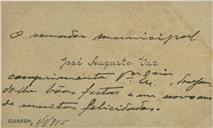 O senador municipal
José Augusto Vaz
cumprimenta
boas festas e um novo anno
de muitas felicidades.
GUARDA,